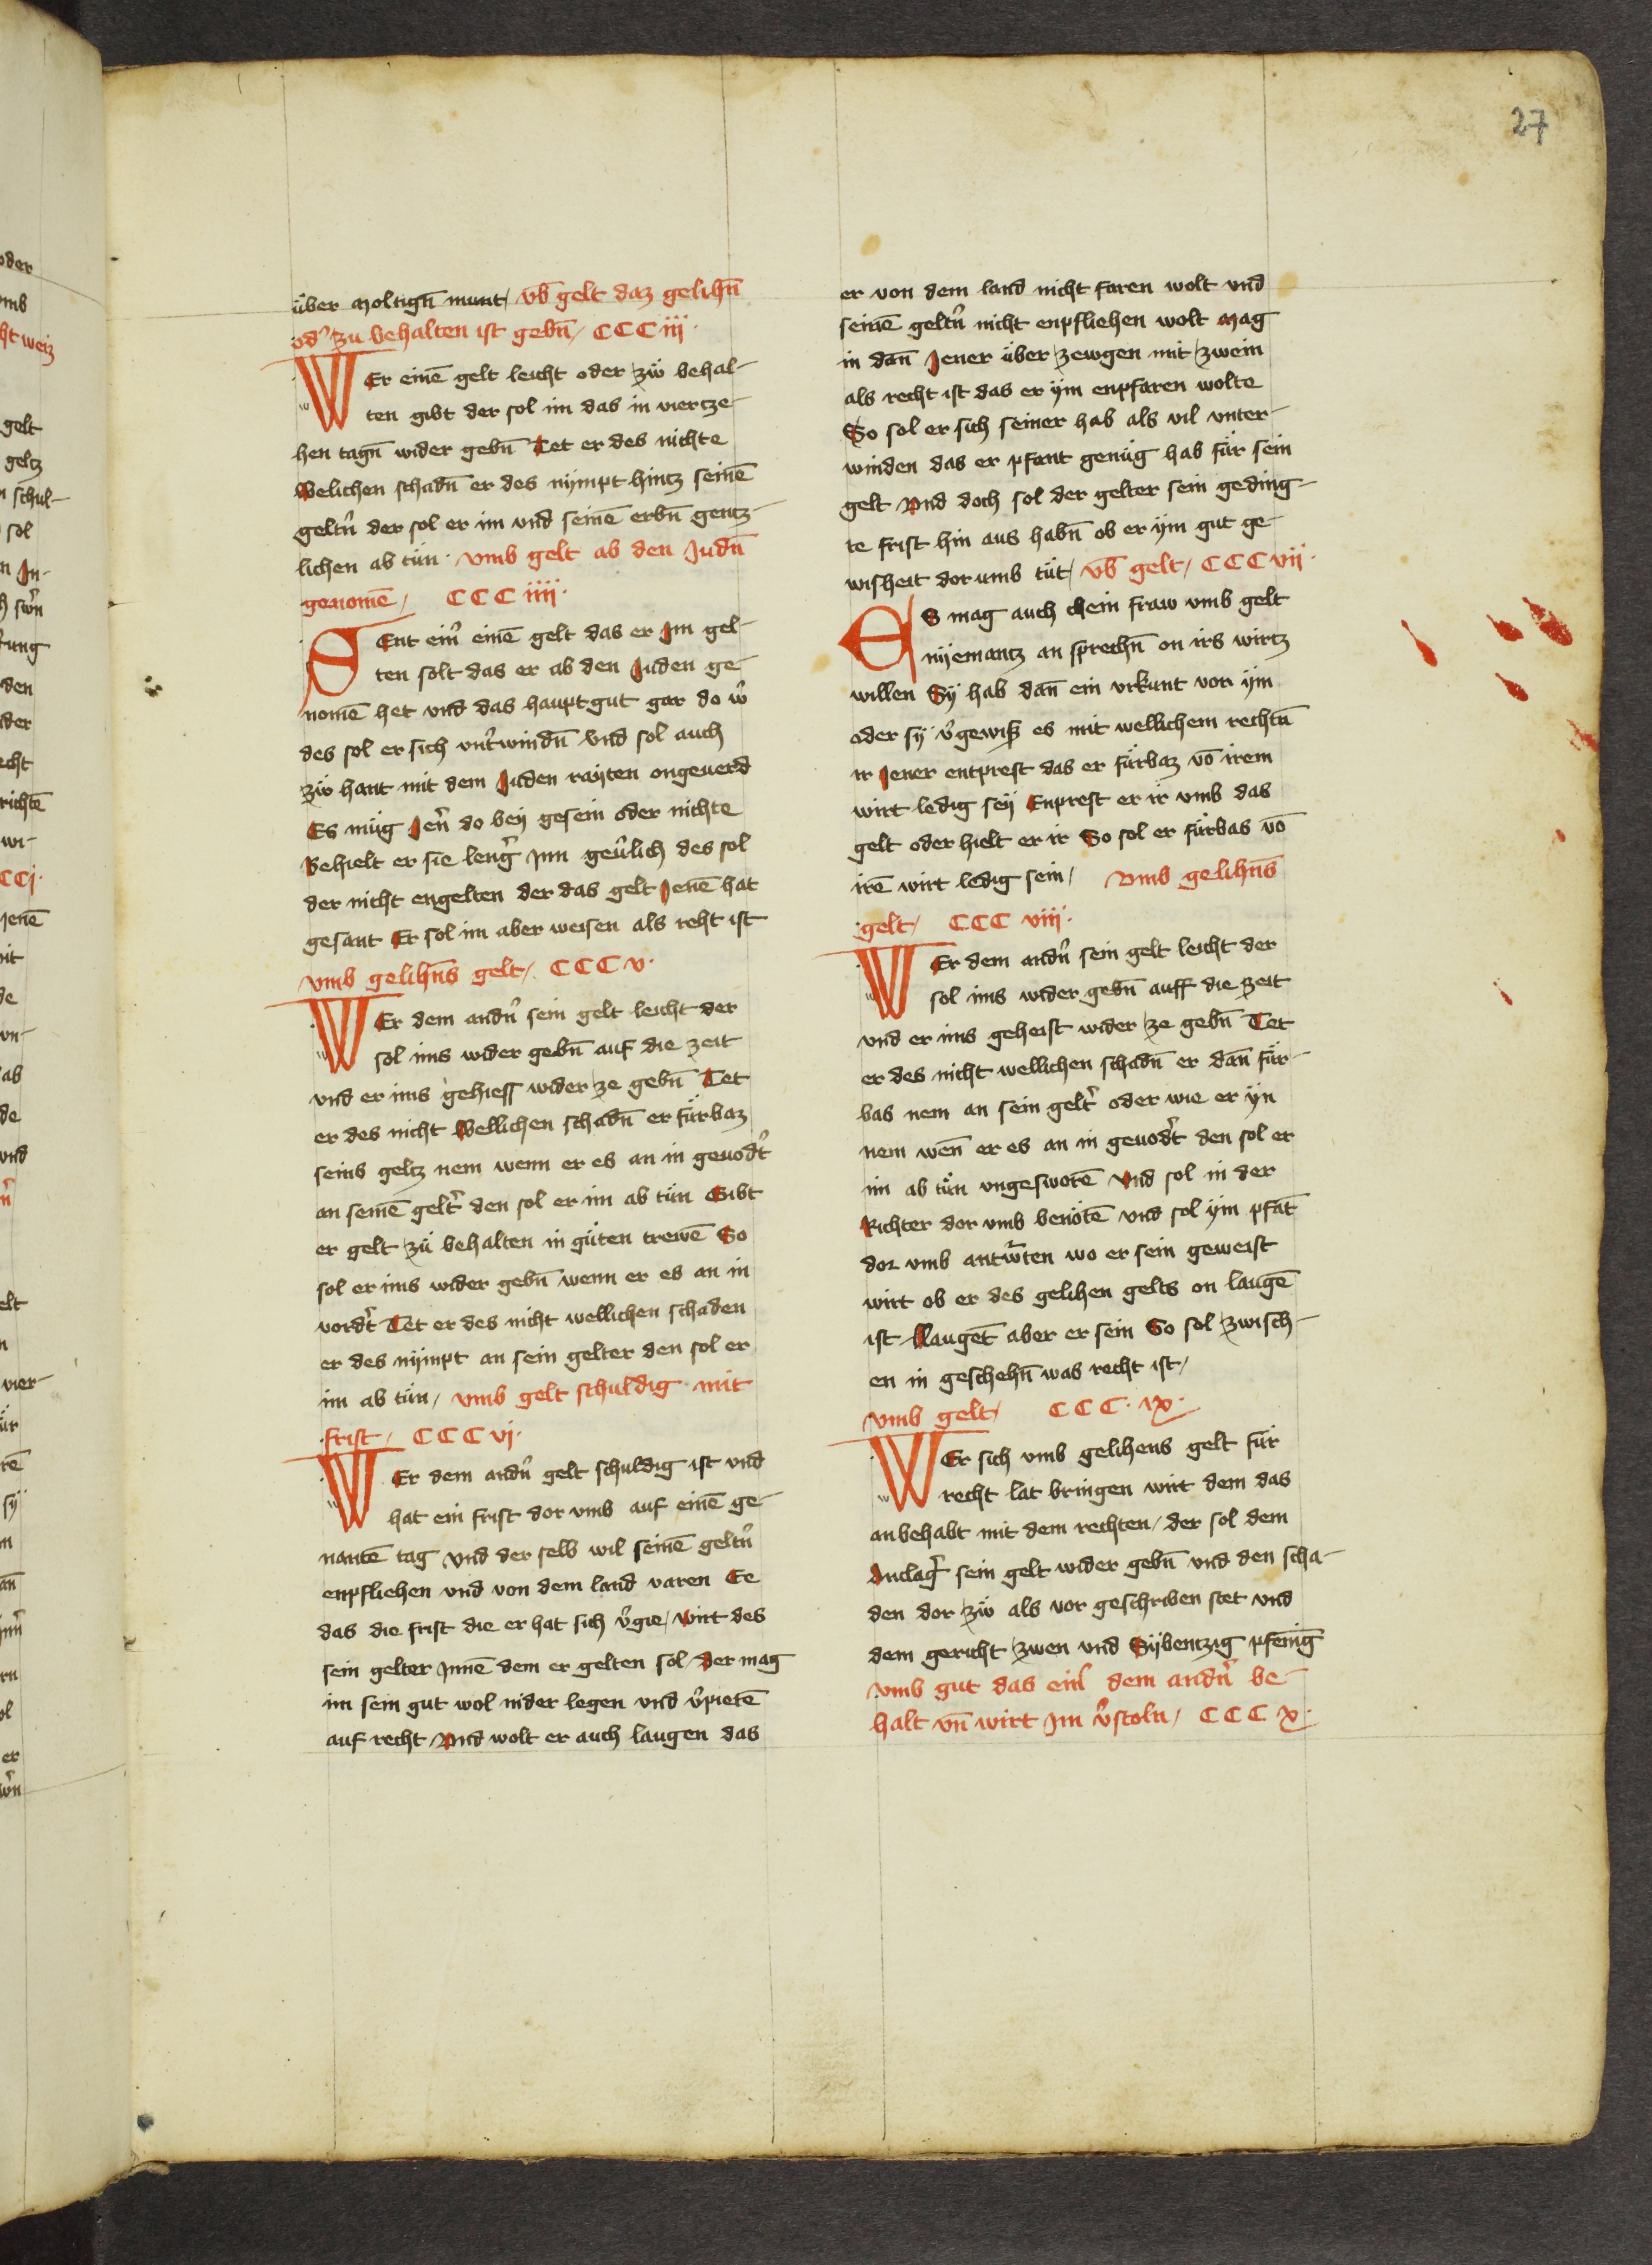 27
über moltign̄ munt / vb̄ gelt daz gelihn̄
od' zu behalten ist gebn̄ / CCC iij ·
WEr einē gelt leicht oder zů behal-
ten gibt der sol im das in viertze-
hen tagn̄ wider gebn̄ Tet er des nichte
Welichen schadn̄ er des nympt hintz seinē
geltn̄ der sol er im vnd seinē erbn̄ gentz-
lichen ab tůn · vmb gelt ab den Judn̄
genomē / CCC iiij ·
SEnt ein' einē gelt das er Im gel-
ten solt das er ab den Juden ge-
nomē het vnd das hauptgut gar do w'
des sol er sich vnt'windn̄ vnd sol auch
zů hant mit dem Juden rayten ongeuerd
Es müg Jen' do bey gesein oder nichte
Behielt er sie leng' Inn geu'lich des sol
der nicht engelten der das gelt Jenē hat
gesant Er sol im aber weisen als reht ist
vmb gelihn̄s gelt / CCC v ·
WEr dem andn̄ sein gelt leicht der
sol ims wider gebn̄ auf die zeit
vnd er ims gehiess wider ze gebn̄ Tet
er des nicht Wellichen schadn̄ er fürbaz
seins geltz nem wenn er es an in geuodt'
an seinē gelt' den sol er im ab tün Gibt
er gelt zü behalten in güten trewē So
sol er ims wider gebn̄ wenn er es an in
vordt' Tet er des nicht wellichen schaden
er des nympt an sein gelter den sol er
im ab tün / vmb gelt schuldig mit
frist / CCC vj ·
WEr dem andn̄ gelt schuldig ist vnd
hat ein frist dor vmb auf einē ge-
nantē tag vnd der selb wil seinē geltn̄
enpfliehen vnd von dem land varen Ee
das die frist die er hat sich v'gie / wirt des
sein gelter Innē dem er gelten sol / Der mag
im sein gut wol nider legen vnd v'pietē
auf recht / Vnd wolt er auch laugen das
er von dem land nicht faren wolt vnd
seinē geltn̄ nicht enpfliehen wolt Mag
in dan̄ Jener über zewgen mit zwein
als recht ist das er ym enpfaren wolte
So sol er sich seiner hab als vil vnter-
winden das er pfant genüg hab für sein
gelt Vnd doch sol der gelter sein geding-
te frist hin aus habn̄ ob er ym gut ge-
wisheit dor umb tüt / vb̄ gelt / CCC vij ·
ES mag auch chein fraw vmb gelt
nyemantz an sprechn̄ on irs wirtz
willen Sy hab dan̄ ein vrkunt vor ym
oder sy v'gewiß es mit wellichem rechtn̄
ir Jener entprest das er fürbaz vō irem
wirt ledig sey Enprest er ir vmb das
gelt oder hielt er ir So sol er fürbas vō
irē wirt ledig sein / Vmb gelihn̄s
gelt / CCC viij ·
WEr dem andn̄ sein gelt leicht der
sol ims wider gebn̄ auff die zeit
vnd er ims geheist wider ze gebn̄ Tet
er des nicht wellichen schadn̄ er dan̄ für-
bas nem an sein gelt' oder wie er yn
nem wen̄ er es an in geuodt' den sol er
im ab tün vngesworē Vnd sol in der
Richter dor vmb benötē vnd sol ym pfāt
dor vmb antw'ten wo er sein geweist
wirt ob er des gelihen gelts on laugē
ist Laugēt aber er sein So sol zwisch-
en in geschehn̄ was recht ist /
vmb gelt / CCC · ix ·
WEr sich vmb gelihens gelt für
recht lat bringen wirt dem das
anbehabt mit dem rechten / der sol dem
Anclag' sein gelt wider gebn̄ vnd den scha-
den dor zů als vor geschriben stet vnd
dem gericht zwen vnd Sybentzig pfenīg
vmb gut das ein' dem andn̄ be-
halt vn̄ wirt Im v'stoln / CCC x ·